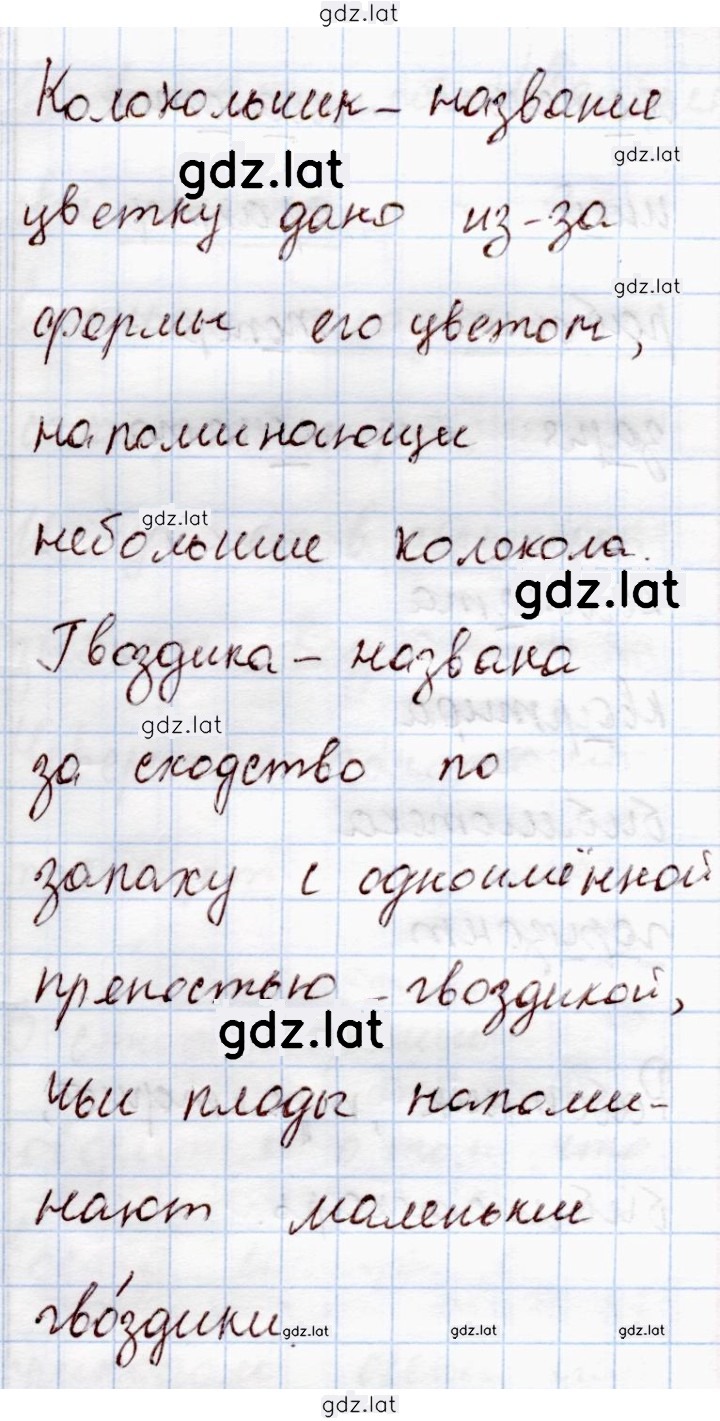 gdz.lat
Колокольчик – название
gdz.lat
gdz.lat
цветку дано из-за
gdz.lat
формы его цветом,
напоминающи
gdz.lat
небольшие колокола.
gdz.lat
Гвоздика – названа
gdz.lat
за сходство по
запаху с одноимённой
пряностью – гвоздикой,
gdz.lat
чьи плоды напоми-
нают маленькие
гво́здики.
gdz.lat gdz.lat gdz.lat
gdz.lat